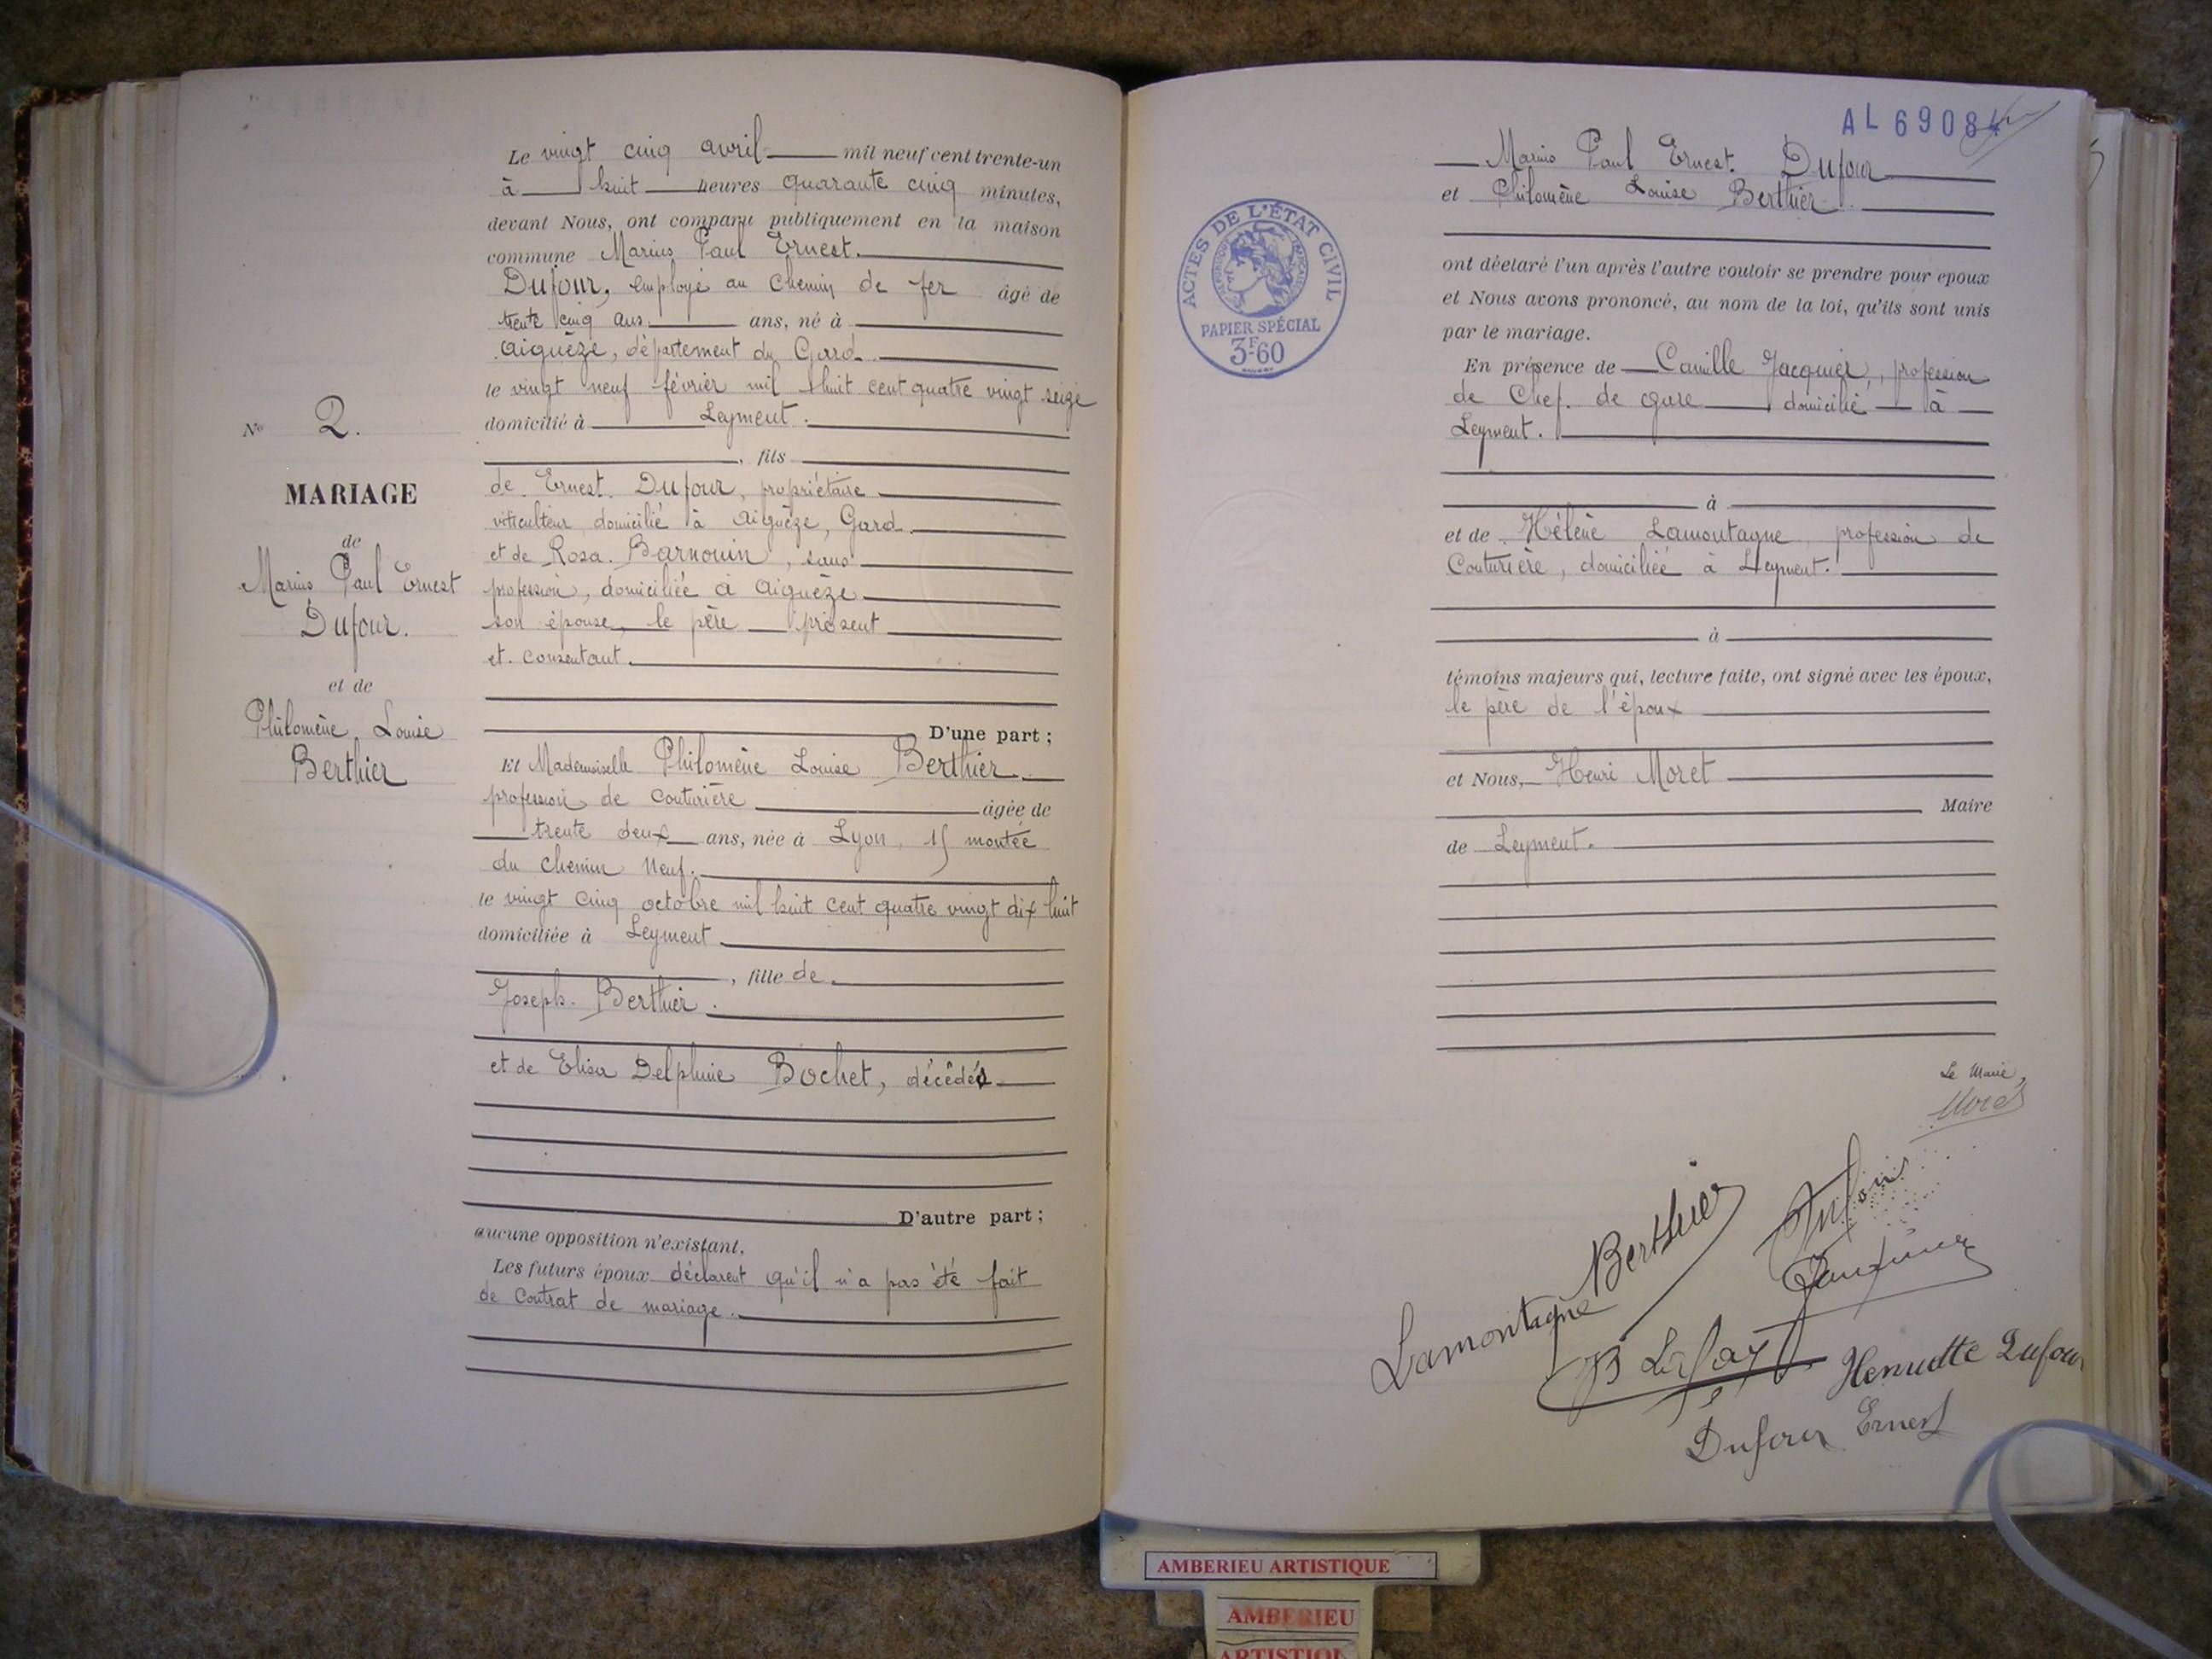 Le vingt cinq avril mil neuf cent trente-un
à huit heures quarante cinq minutes,
devant Nous, ont comparu publiquement en la maison
commune Marius Paul Ernest.
Dufour, employé au Chemin de fer âgé de
trente cinq ans ans, né à
Aiguèze, département du Gard
le vingt neuf février mil huit cent quatre vingt seize
domicilié à Leyment.
, fils
de Ernest Dufour, propriétaire
viticulteur domicilié à Aiguèze, Gard
et de Rosa Barnouin, sans
profession, domiciliée à Aiguèze
son épouse, le père présent
et consentant.
D'une part ;
Et Mademoiselle Philomène Louise Berthier
profession de couturière âgée de
trente deux ans, née à Lyon, montée
du Chemin Neuf.
le vingt cinq octobre mil huit cent quatre vingt dix huit
domiciliée à Leyment
, fille de
Joseph Berthier.
et de Elisa Delphine Bochet, décédés
D'autre part ;
aucune opposition n'existant,
Les futurs époux déclarent qu'il n'a pas été fait
de Contrat de mariage.
No 2.
MARIAGE
de
Marius Paul Ernest
Dufour.
et de
Philomène Louise
Berthier
AL 69084
Marius Paul Ernest Dufour
et Philomène Louise Berthier
ont déclaré l'un après l'autre vouloir se prendre pour epoux
et Nous avons prononcé, au nom de la loi, qu'ils sont unis
par le mariage.
En présence de Camille Jacquier, profession
de Chef de gare domicilié à
Leyment.
à
et de Hélène Lamontagne profession de
Couturière, domiciliée à Leyment.
à
témoins majeurs qui, lecture faite, ont signé avec les époux,
le père de l'époux
et Nous, Henri Moret
Maire
de Leyment.
ACTES DE L'ÉTAT CIVIL
RÉPUBLIQUE FRANÇAISE
PAPIER SPÉCIAL
3F60
Le Maire,
Moret
Berthier
Dufour
Lamontagne
Henriette Dufour
Dufour Ernest
AMBERIEU ARTISTIQUE
AMBERIEU